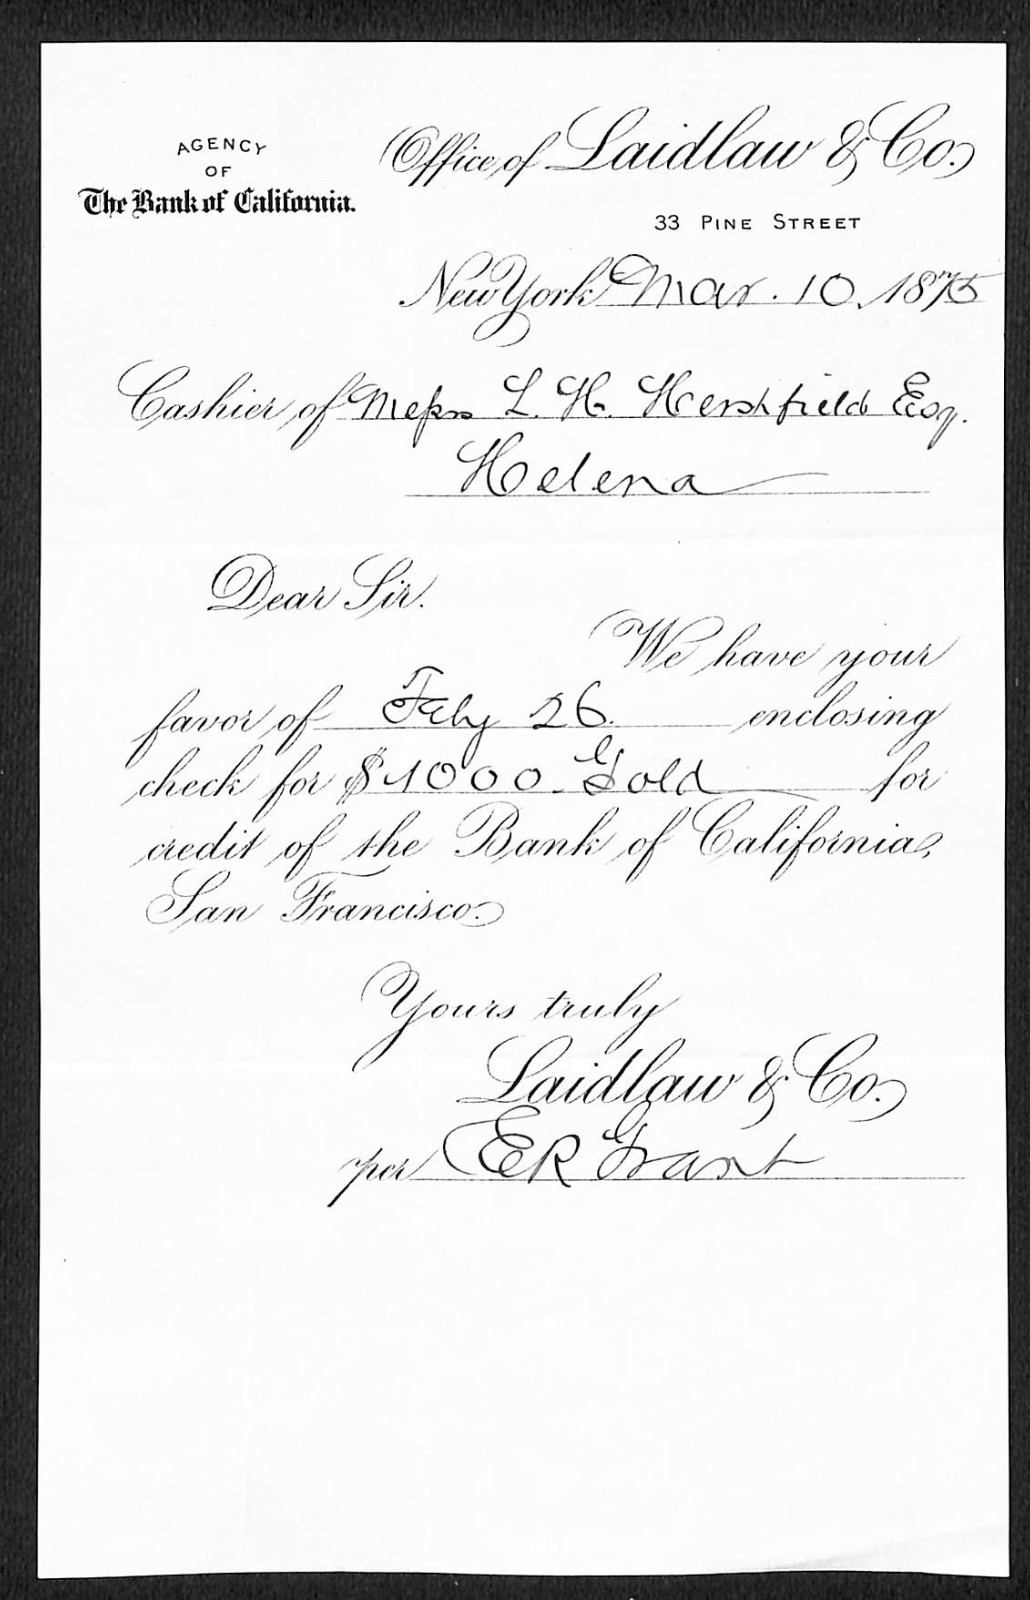 AGENCY
OF
The Bank of California.
Office of Laidlaw & Co.
33 PINE STREET
New York Mar. 10. 1875
Cashier of Messrs L. H. Hershfield Esq.
Helena
Dear Sir.
We have your
favor of Feby 26. enclosing
check for $1000. Gold for
credit of the Bank of California,
San Francisco.
Yours truly
Laidlaw & Co.
per E R Grant